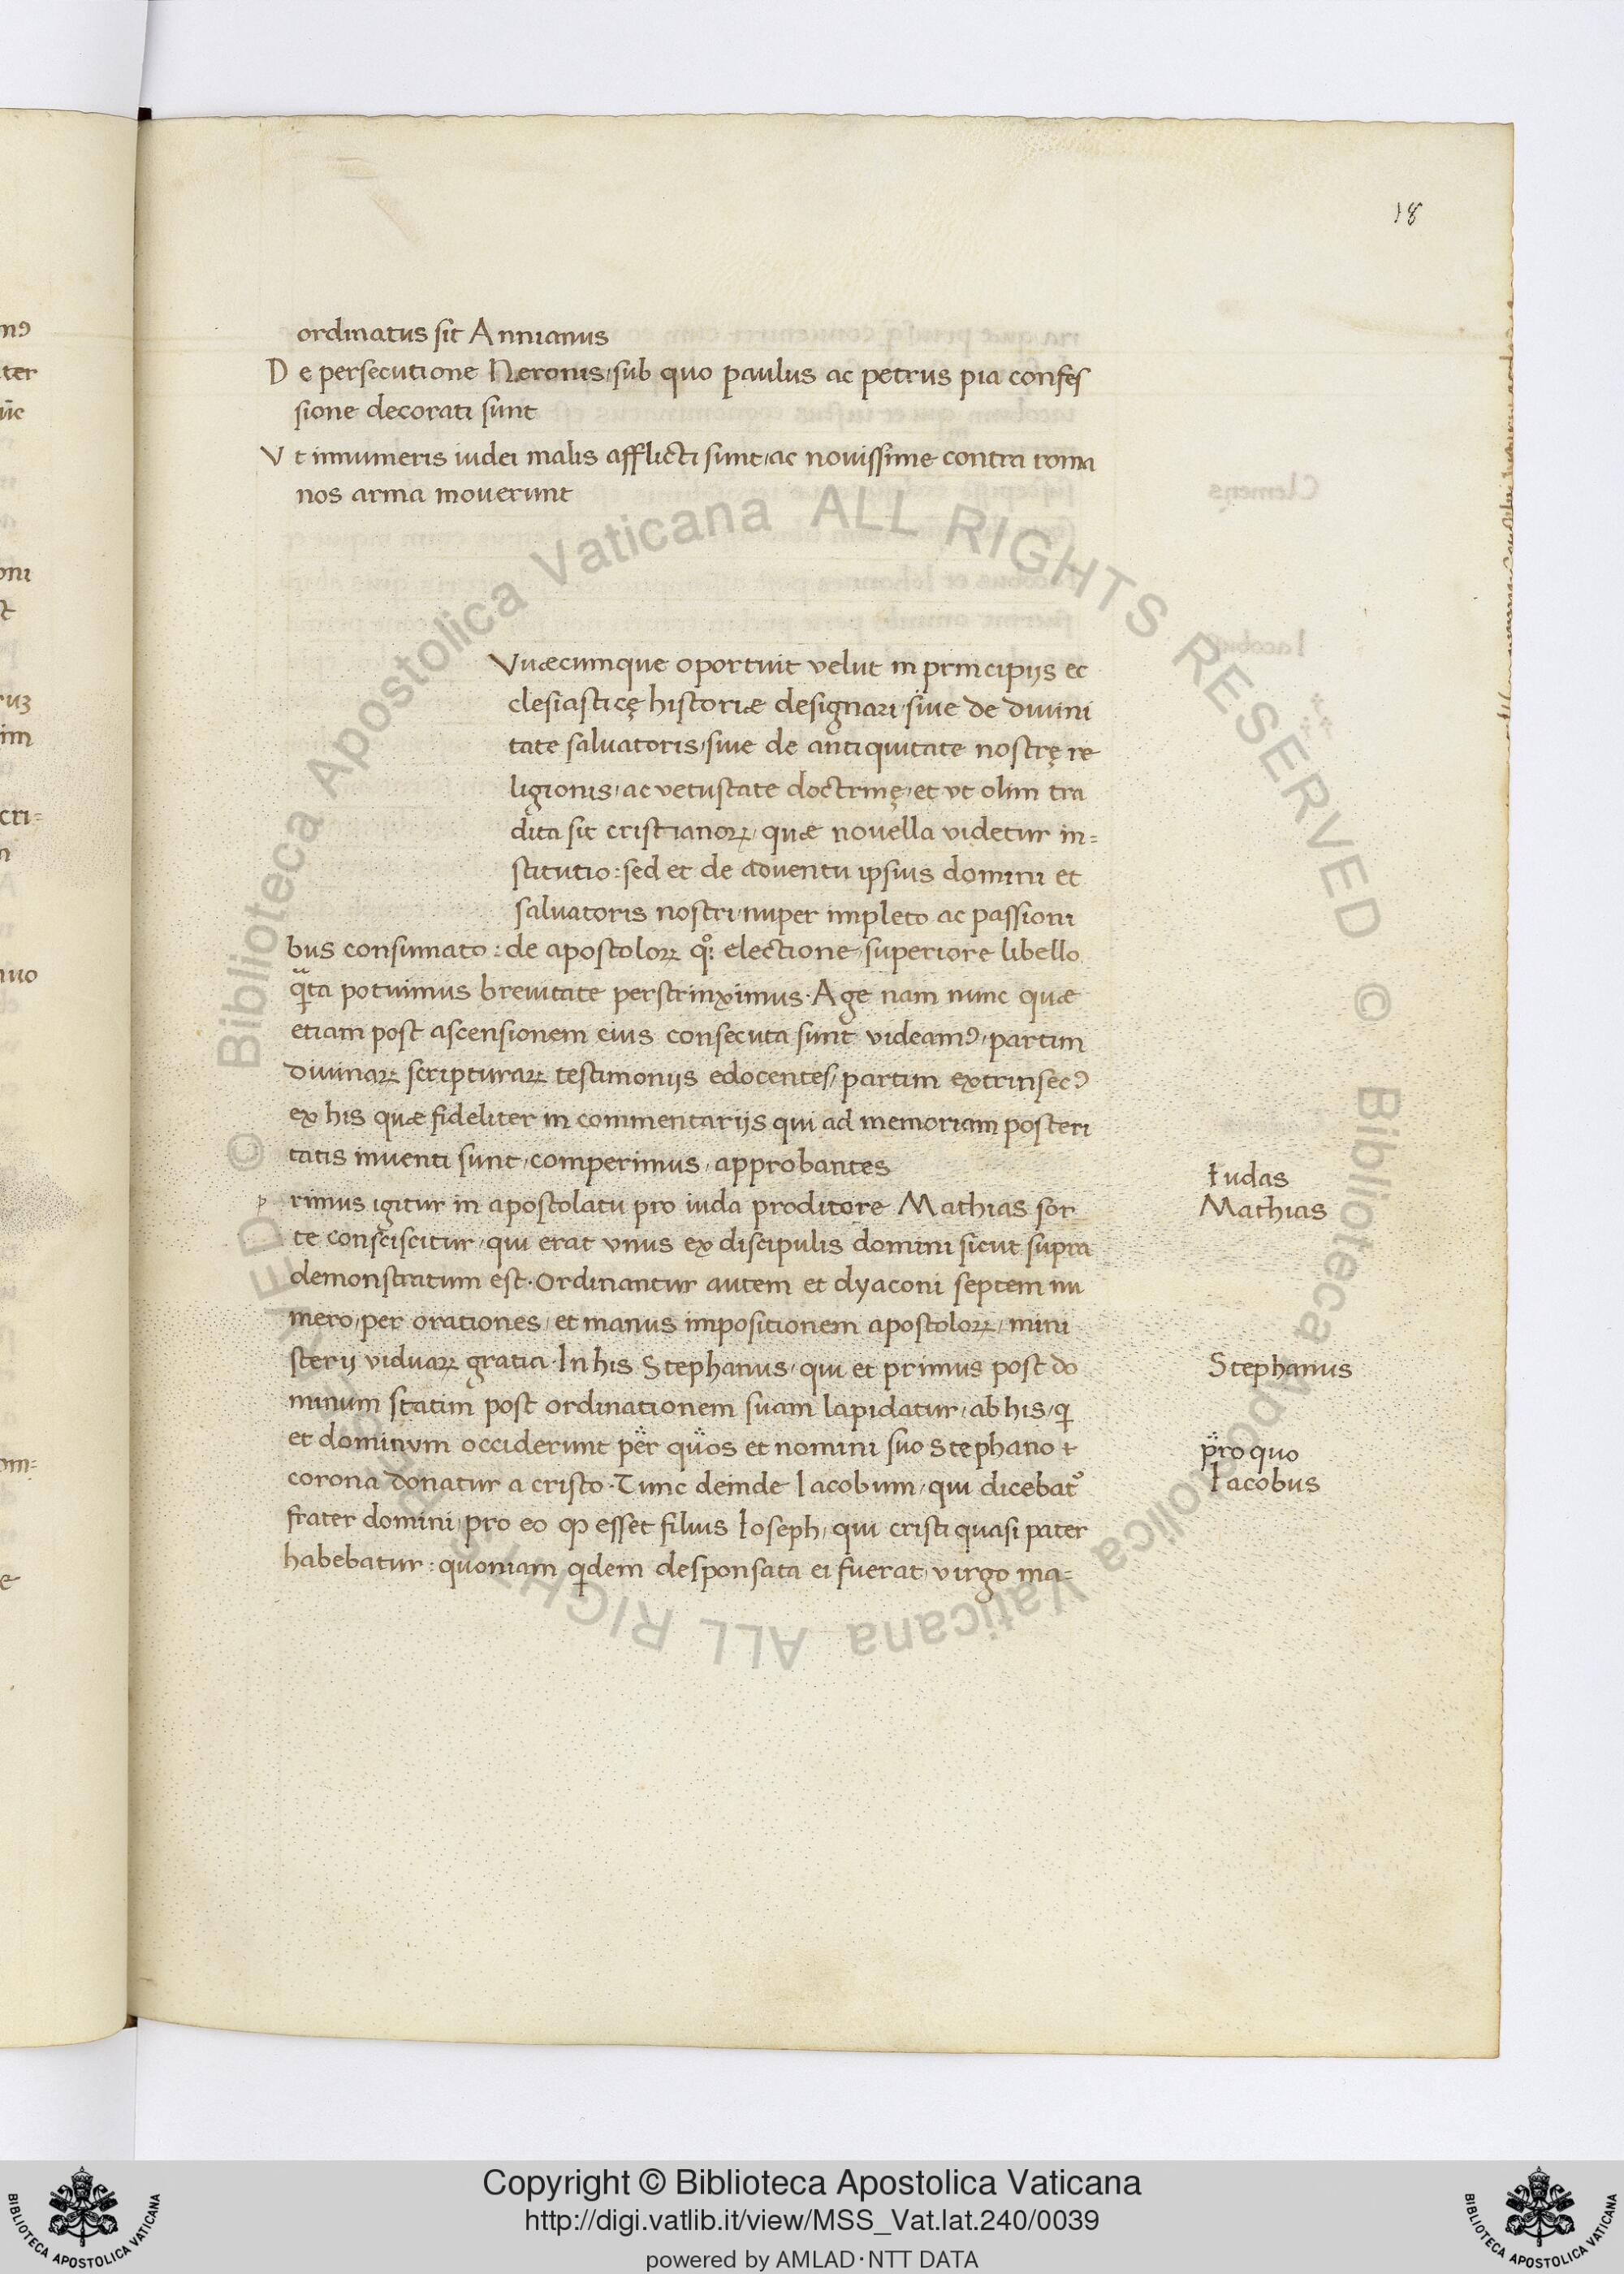 18
ordinatus sit Annianus
De persecutione Neronis, sub quo paulus ac petrus pia confes
sione decorati sunt
Vt innumeris iudei malis afflicti sunt, ac nouissime contra roma
nos arma mouerunt
Vuæcumque oportuit velut in principijs ec
clesiasticę historiæ designari, siue de diuini
tate saluatoris, siue de antiquitate nostrę re
ligionis, ac vetustate doctrinę, et vt olim tra
dita sit cristianoꝝ, quæ nouella videtur in=
stitutio: sed et de aduentu ipsius domini et
saluatoris nostri nuper impleto ac passioni
bus consumato: de apostoloꝝ qͦꝫ electione, superiore libello
qͣta potuimus breuitate perstrinximus. Age nam nunc quæ
etiam post ascensionem eius consecuta sunt videamꝰ, partim
diuinaꝝ scripturaꝝ testimonijs edocentes, partim extrinsecꝰ
ex his quæ fideliter in commentarijs qui ad memoriam posteri
tatis inuenti sunt, comperimus, approbantes
primus igitur in apostolatu pro iuda proditore Mathias sor
te consciscitur, qui erat vnus ex discipulis domini sicut supra
demonstratum est. Ordinantur autem et dyaconi septem nu
mero, per orationes, et manus impositionem apostoloꝝ, mini
sterij viduaꝝ gratia. In his Stephanus, qui et primus post do
minum statim post ordinationem suam lapidatur, ab his, qi
et dominum occiderunt per quos et nomini suo stephano &
corona donatur a cristo. Tunc deinde Iacobum, qui dicebatᷣ
frater domini, pro eo ꝙ esset filius Ioseph, qui cristi quasi pater
habebatur: quoniam qidem desponsata ei fuerat, virgo ma=
Iudas
Mathias
Stephanus
pro quo
Iacobus
© Biblioteca Apostolica Vaticana ALL RIGHTS RESERVED
Copyright © Biblioteca Apostolica Vaticana
http://digi.vatlib.it/view/MSS_Vat.lat.240/0039
powered by AMLAD·NTT DATA
BIBLIOTECA APOSTOLICA VATICANA
BIBLIOTECA APOSTOLICA VATICANA